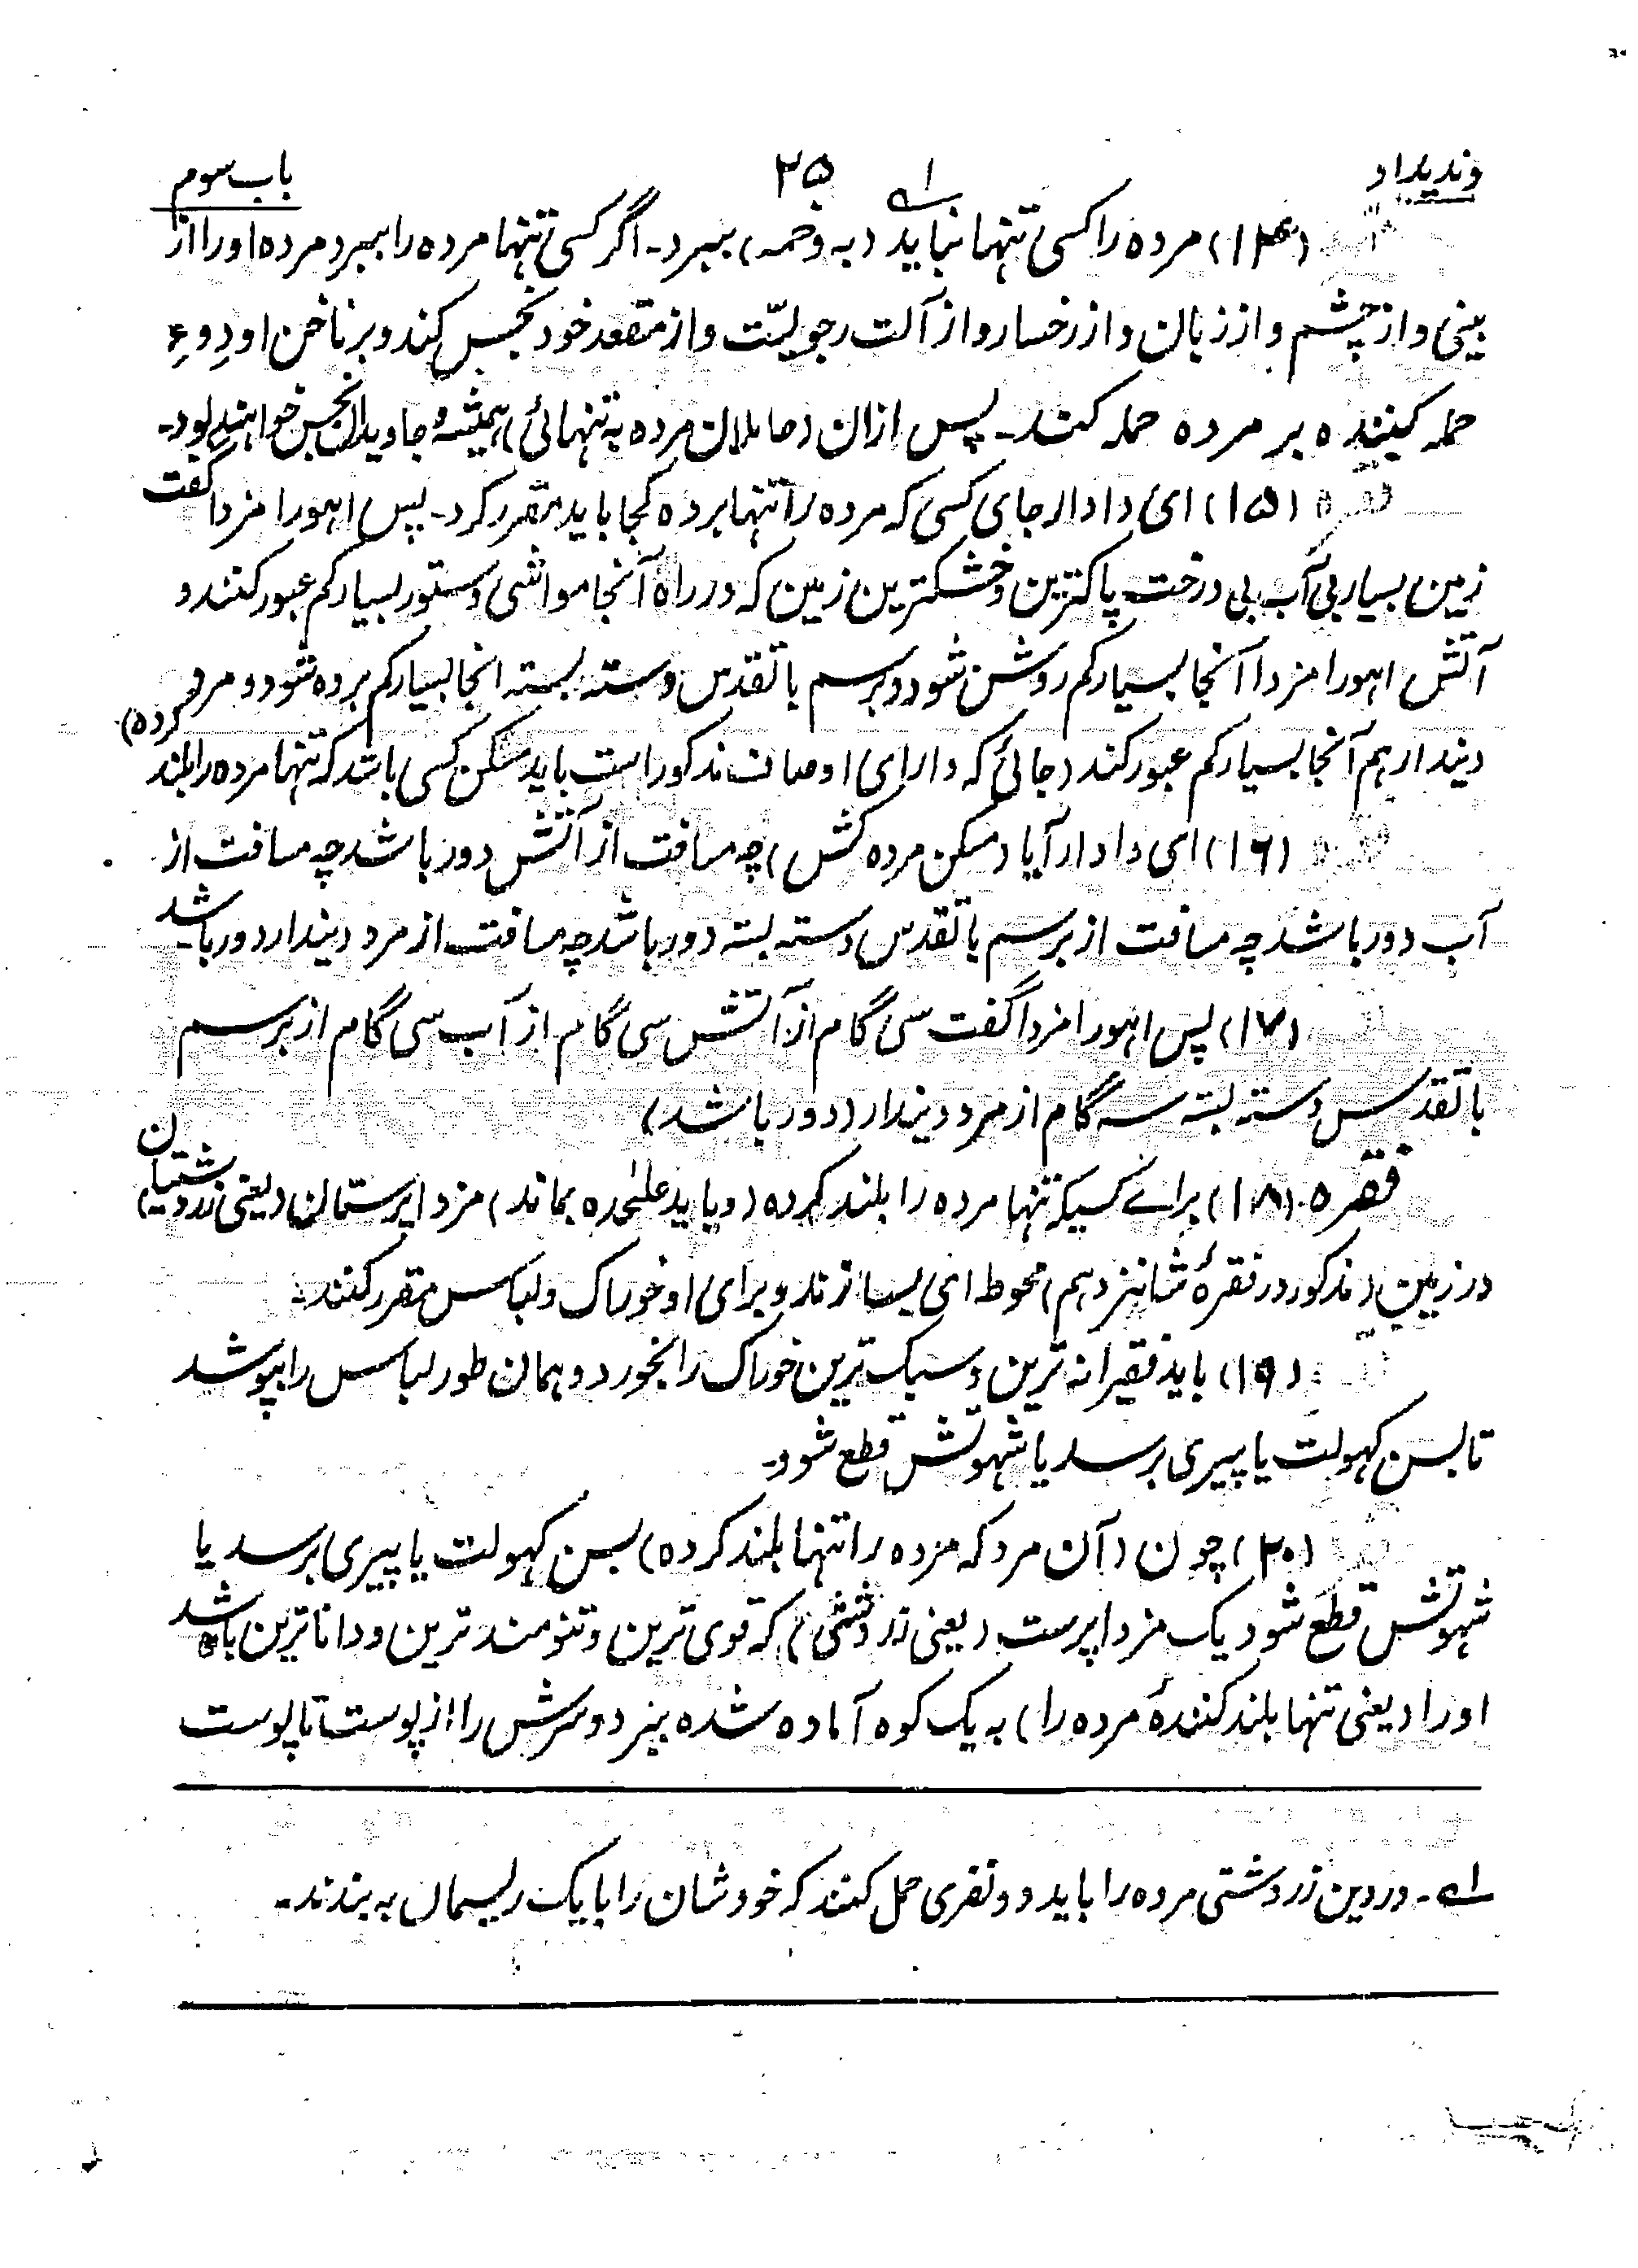 وندیداد ۲۵ باب سوم
(۱۴) مرده را کسی تنها نباید (به دخمه) ببرد۔ اگر کسی تنها مرده را ببرد مرده او را از
بینی و از چشم و از زبان و از رخسار و از آلت رجولیّت و از مقعد خود نجس کند و بر ناخن او دِوِ
حمله کیننده بر مرده حمله کند۔ پس ازان (حاملان مرده به تنهائی) همیشه و جاویدان نجس خواهند بود۔
فقره (۱۵) ای دادار جای کسی که مرده را تنها برده کجا باید مقرر کرد۔ پس اهورا مزدا گفت
زمین بسیار بی آب بی درخت پاکترین و خشکترین زمین که در راه آنجا مواشی و ستور بسیار کم عبور کنند و
آتش اهورا مزدا آنجا بسیار کم روشن شود و برسم با تقدس دسته بسته انجا بسیار کم برده شود و مرد
دیندار هم آنجا بسیار کم عبور کند (جائی که دارای اوصاف مذکور است باید مسکن کسی باشد که تنها مرده را بلند کرده)
(۱۶) ای دادار آیا (مسکن مرده کش) چه مسافت از آتش دور باشد چه مسافت از
آب دور باشد چه مسافت از برسم با تقدس دسته بسته دور باشد چه مسافت از مرد دیندار دور باشد
(۱۷) پس اهورا مزدا گفت سی گام از آتش سی گام از آب سی گام از برسم
با تقدس دسته بسته سه گام از مرد دیندار (دور باشد)
فقره (۱۸) برائے کسیکه تنها مرده را بلند کرده (و باید علیٰحده بماند) مزدا پرستان (یعنی زردشتیان)
در زمین (مذکور در فقرهٔ شانزدهم) محوطه ای بسازند و برای او خوراک و لباس مقرر کنند۔
(۱۹) باید فقیرانه ترین و سبک ترین خوراک را بخورد و همان طور لباس را بپوشد
تا بسن کهولت یا پیری برسد یا شهوتش قطع شود۔
(۲۰) چون (آن مرد که مرده را تنها بلند کرده) بسن کهولت یا پیری برسد یا
شهوتش قطع شود یک مزدا پرست (یعنی زردشتی) که قوی ترین و تنومند ترین و دانا ترین باشد
او را (یعنی تنها بلند کنندهٔ مرده را) به یک کوه آماده شده ببرد و سرش را از پوست تا پوست
۱ـه۔ در دین زردشتی مرده را باید دو نفری حمل کنند که خودشان را با یک ریسمان به بندند۔